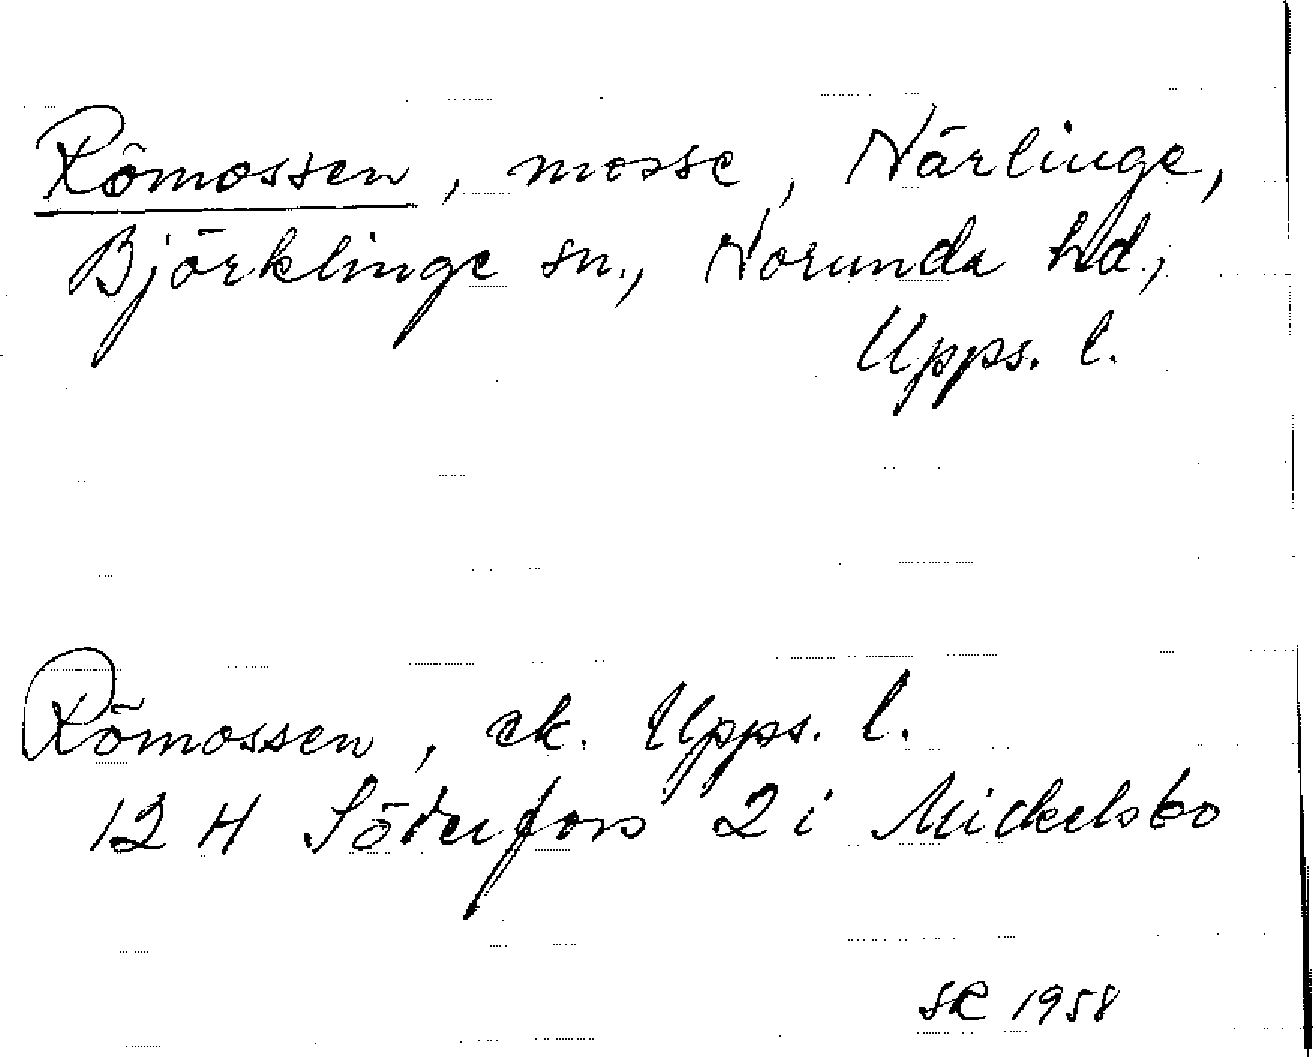 Römossen, mosse, Närlinge,
Björklinge sn., Norunda hd.,
Upps. l.
Römossen, ek. Upps. l.
12 H Söderfors 2 i Mickelsbo
SR 1958